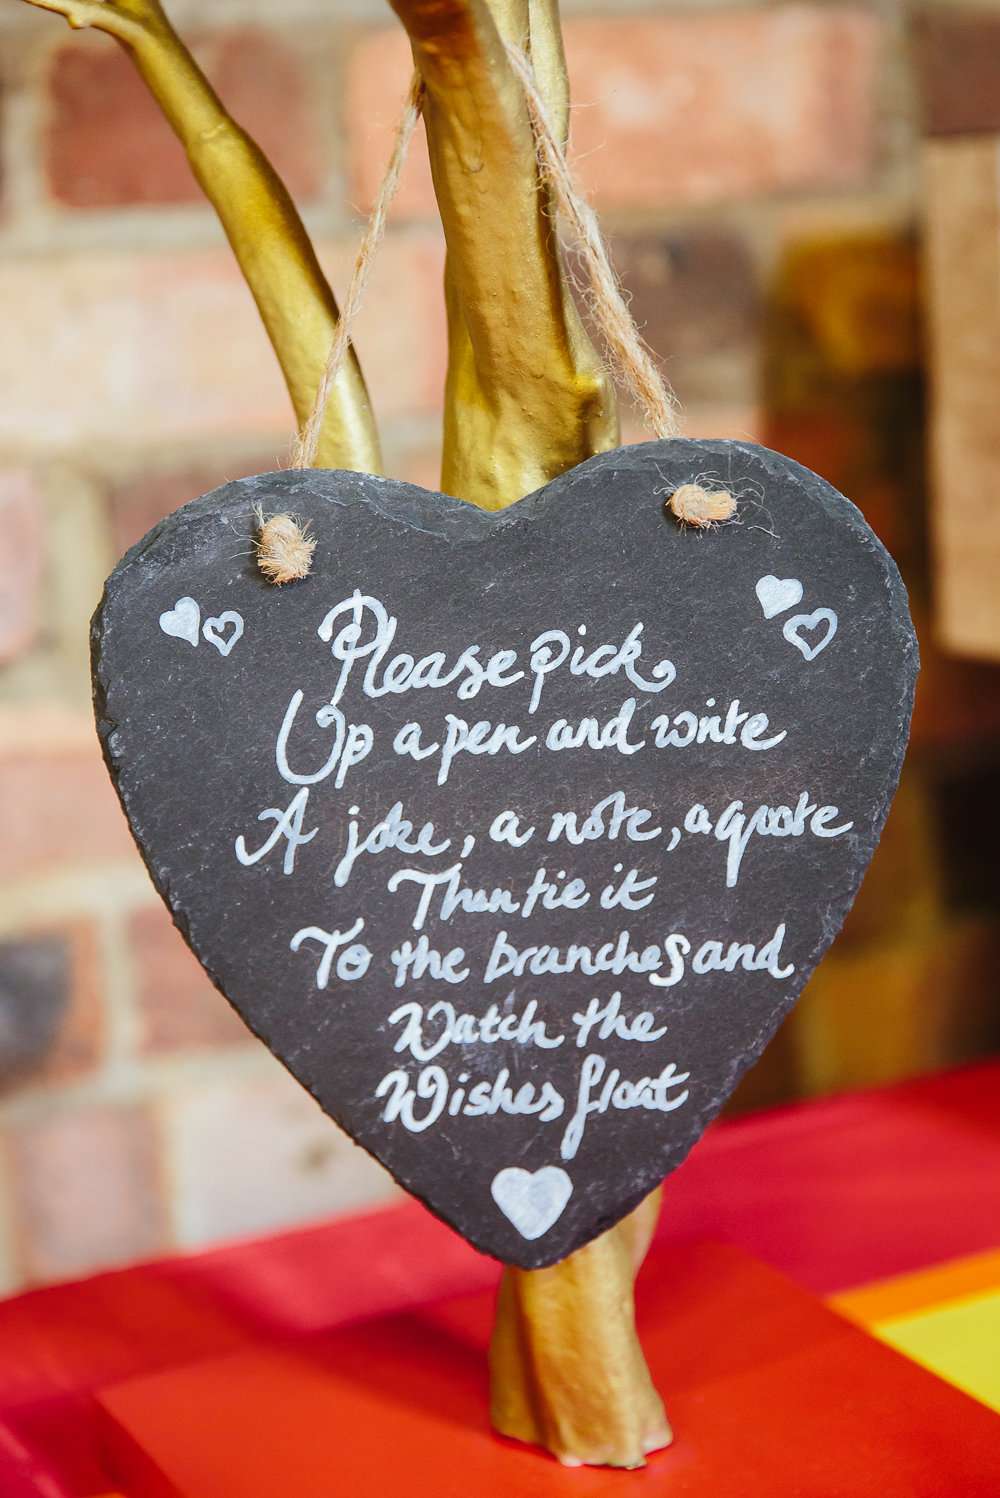 Please pick
Up a pen and write
A joke, a note, a quote
Then tie it
To the branches and
Watch the
Wishes float